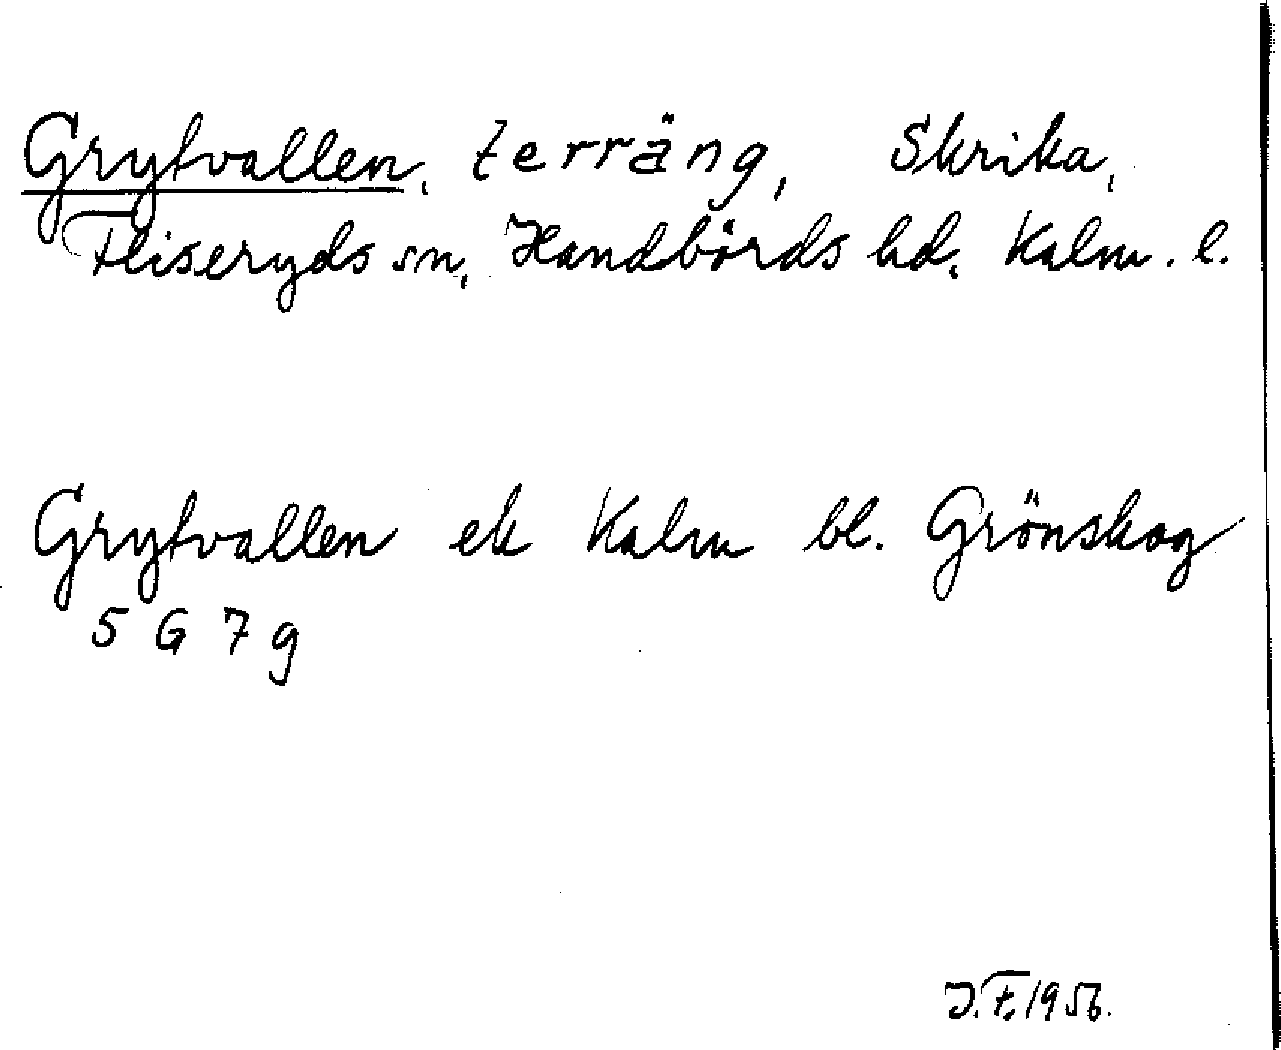 Grytvallen, terräng, Skrika,
Fliseryds sn, Handbörds hd, Kalm. l.
Grytvallen ek Kalm bl. Grönskog
5 G 7 g
J.F. 1956.